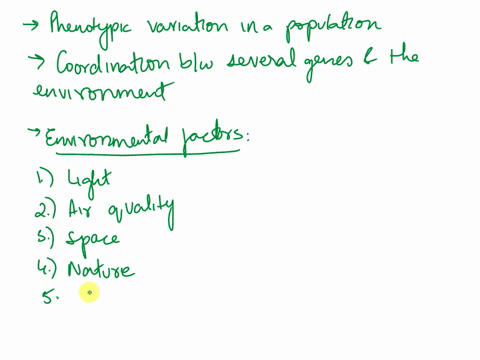 → Phenotypic variation in a population
→ Coordination b/w several genes & the
environment
→ Environmental factors:
1.) Light
2.) Air quality
3.) Space
4.) Nature
5.